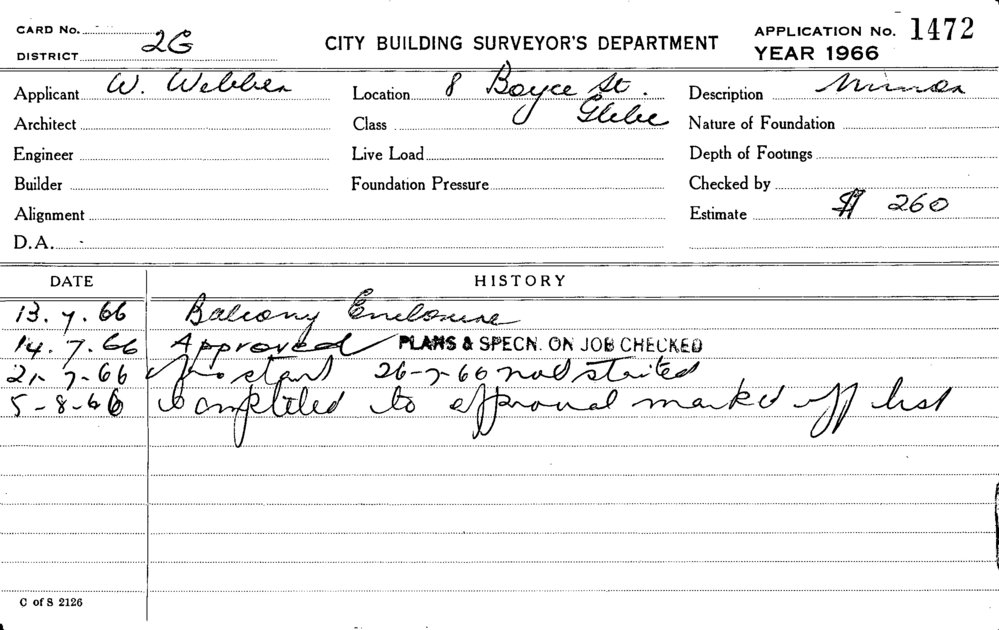 CARD No.
DISTRICT 2G
CITY BUILDING SURVEYOR'S DEPARTMENT
APPLICATION No. 1472
YEAR 1966
Applicant W. Webber
Location 8 Boyce St. Glebe
Description Minor
Architect
Class
Nature of Foundation
Engineer
Live Load
Depth of Footings
Builder
Foundation Pressure
Checked by
Alignment
Estimate $ 260
D.A.
DATE HISTORY
13.7.66 Balcony Enclosure
14.7.66 Approved PLANS & SPECN. ON JOB CHECKED
21-7-66 No start 26-7-66 not started
5-8-66 Completed to approval marked off list
C of S 2126